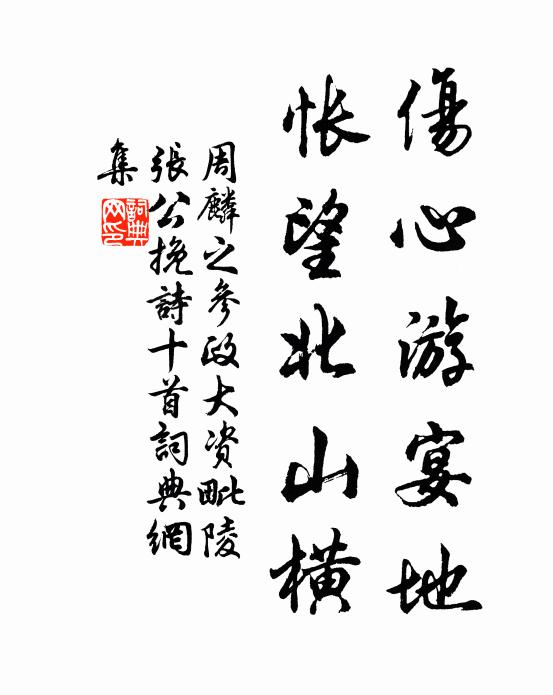 傷心游宴地
悵望北山橫
周麟之參政大资毗陵
張公挽詩十首詞典網
集
詞典網印